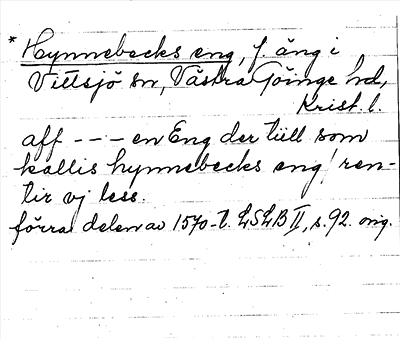 * Hynnebecks eng, f. äng i
Vittsjö sn, Västra Göinge hd,
Krist. l.
aff - - - en Eng der till som
kallis hynnebecks eng / ren-
tir vj less.
förra delen av 1570-t. LSLB II, s. 92. orig.